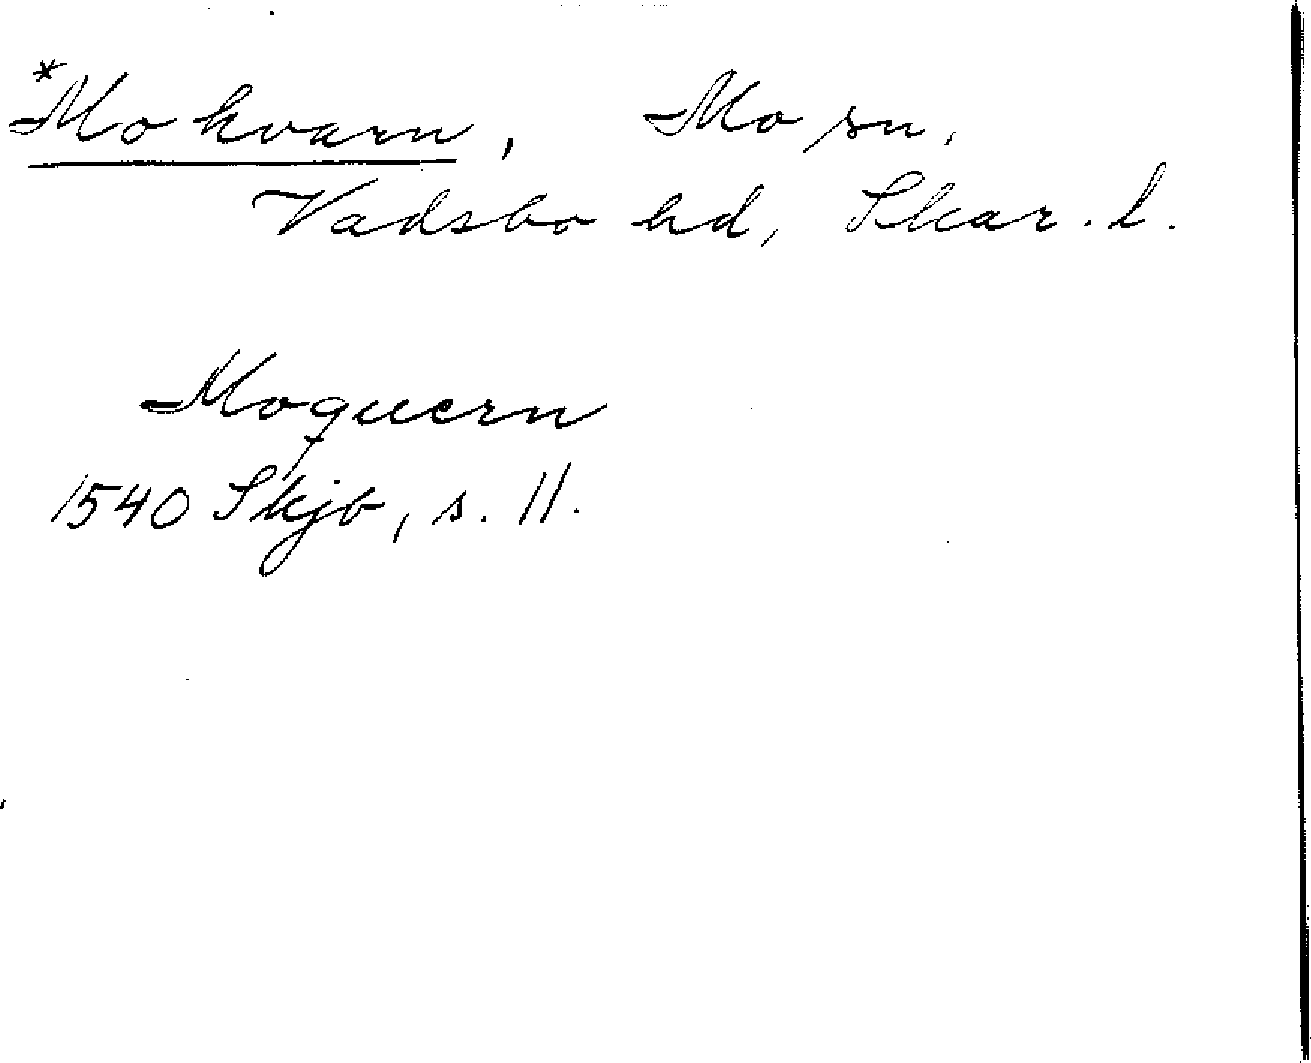 *Mo kvarn, Mo sn,
Vadsbo hd, Skar. l.
Moquern
1540 Skjb, s. 11.